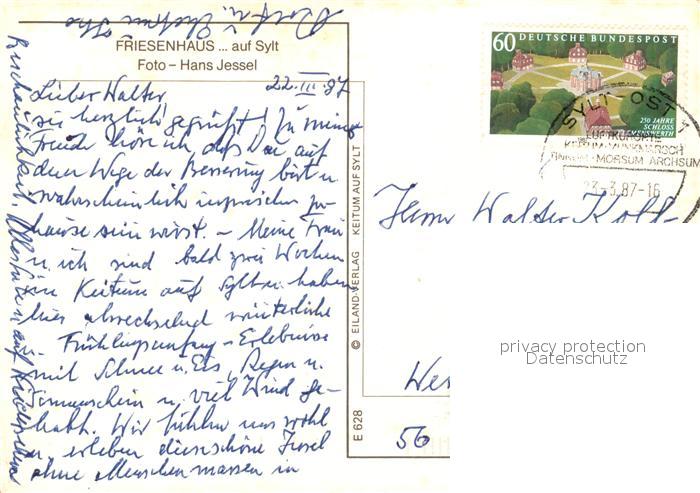 FRIESENHAUS ... auf Sylt
Foto – Hans Jessel
22. III. 87
Lieber Walter
sei herzlich gegrüßt! Zu meiner
Freude höre ich, daß Du auf
dem Wege der Besserung bist u.
wahrscheinlich inzwischen zu-
hause sein wirst. – Meine Frau
u. ich sind bald zwei Wochen
in Keitum auf Sylt u. haben
hier abwechselnd winterliche
Frühlingsanfang-Erlebnisse
mit Schnee u. Eis, Regen u.
Sonnenschein u. viel Wind ge-
habt. Wir fühlen uns wohl
u. erleben die schöne Insel
ohne Menschenmassen in
Beschaulichkeit. Alles Gute u. auf Wiedersehen
© EILAND-VERLAG KEITUM AUF SYLT
E 628
60 DEUTSCHE BUNDESPOST
250 JAHRE
SCHLOSS
CLEMENSWERTH
SYLT OST 1
LUFTKURORTE
KEITUM MUNKMARSCH
TINNUM MORSUM ARCHSUM
23-3.87-16
Herrn Walter
56
privacy protection
Datenschutz